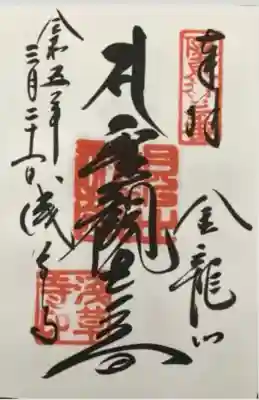 奉拝
金龍山
聖観世音
令和五年三月二十一日 浅草寺
浅草寺印